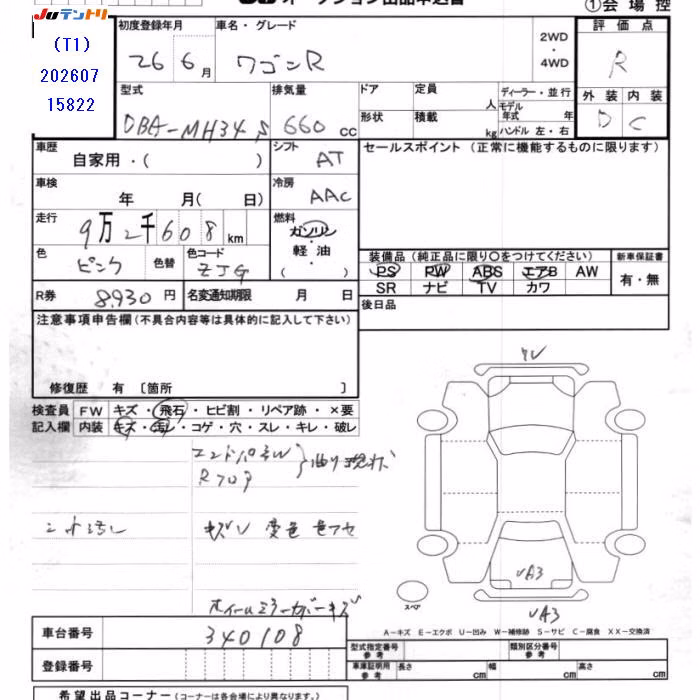 JUテントリ
オークション出品申込書
①会場控
(T1)
202607
15822
初度登録年月
車名・グレード
2WD
・
4WD
評価点
26 6月
ワゴンR
R
型式
排気量
ドア
定員
人
ディーラー・並行
外装 内装
DBA-MH34S
660cc
形状
積載
kg
モデル年式 年
ハンドル 左・右
D C
車歴
自家用・( )
シフト
AT
セールスポイント (正常に機能するものに限ります)
車検
年 月( 日)
冷房
AAC
走行
9万2千608km
燃料
ガソリン
軽油
( )
色
ピンク
色替
色コード
ZJG
装備品 (純正品に限り○をつけてください)
新車保証書
PS PW ABS エアB AW
SR ナビ TV カワ
有・無
R券 8930円
名変通知期限 月 日
後日品
注意事項申告欄 (不具合内容等は具体的に記入して下さい)
修復歴 有 [箇所 ]
検査員
記入欄
FW キズ・飛石・ヒビ割・リペア跡・×要
内装 キズ・汚レ・コゲ・穴・スレ・キレ・破レ
エンドパネW
Rフロア
キズV 変色 色アセ
ホイールミラーガバーキズ
VA3
VA3
スペア
A-キズ E-エクボ U-凹み W-補修跡 S-サビ C-腐食 XX-交換済
車台番号 340108
登録番号
型式指定番号
参考
類別区分番号
参考
車庫証明用
参考
長さ cm 幅 cm 高さ cm
希望出品コーナー (コーナーは各会場により異なります。)